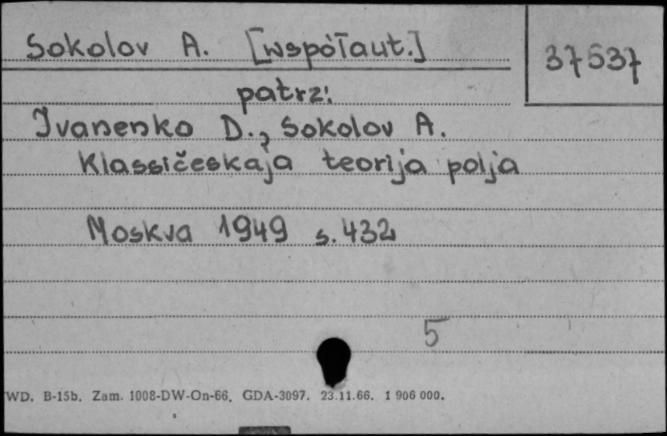 Sokolov A. [współaut.]
37537
patrz:
Ivanenko D., Sokolov A.
Klassičeskaja teorija polja
Moskva 1949 s. 432
5
WD. B-15b. Zam. 1008-DW-On-66. GDA-3097. 23.11.66. 1 906 000.